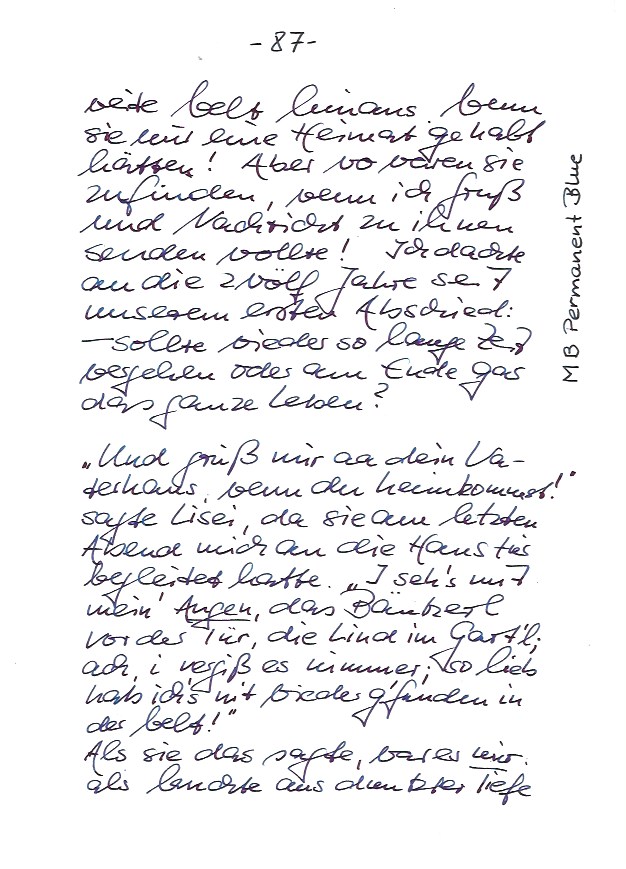 - 87 -
weite Welt hinaus. Wenn
sie nur eine Heimat gehabt
hätten! Aber wo waren sie
zu finden, wenn ich Gruß
und Nachricht zu ihnen
senden wollte! Ich dachte
an die zwölf Jahre seit
unserem ersten Abschied:
– sollte wieder so lange Zeit
vergehen oder am Ende gar
das ganze Leben?
„Und grüß mir aa dein Va-
terhaus, wenn du heimkommst!"
sagte Lisei, da sie am letzten
Abend mich an die Haustür
begleitet hatte. „I seh's mit
mein' Augen, das Bänkerl
vor der Tür, die Lind im Gart'l;
ach, i vergiß es nimmer; so lieb
hab ich's nit wieder g'funden in
der Welt!"
Als sie das sagte, war es mir
als leuchte aus dunkler Tiefe
MB Permanent Blue